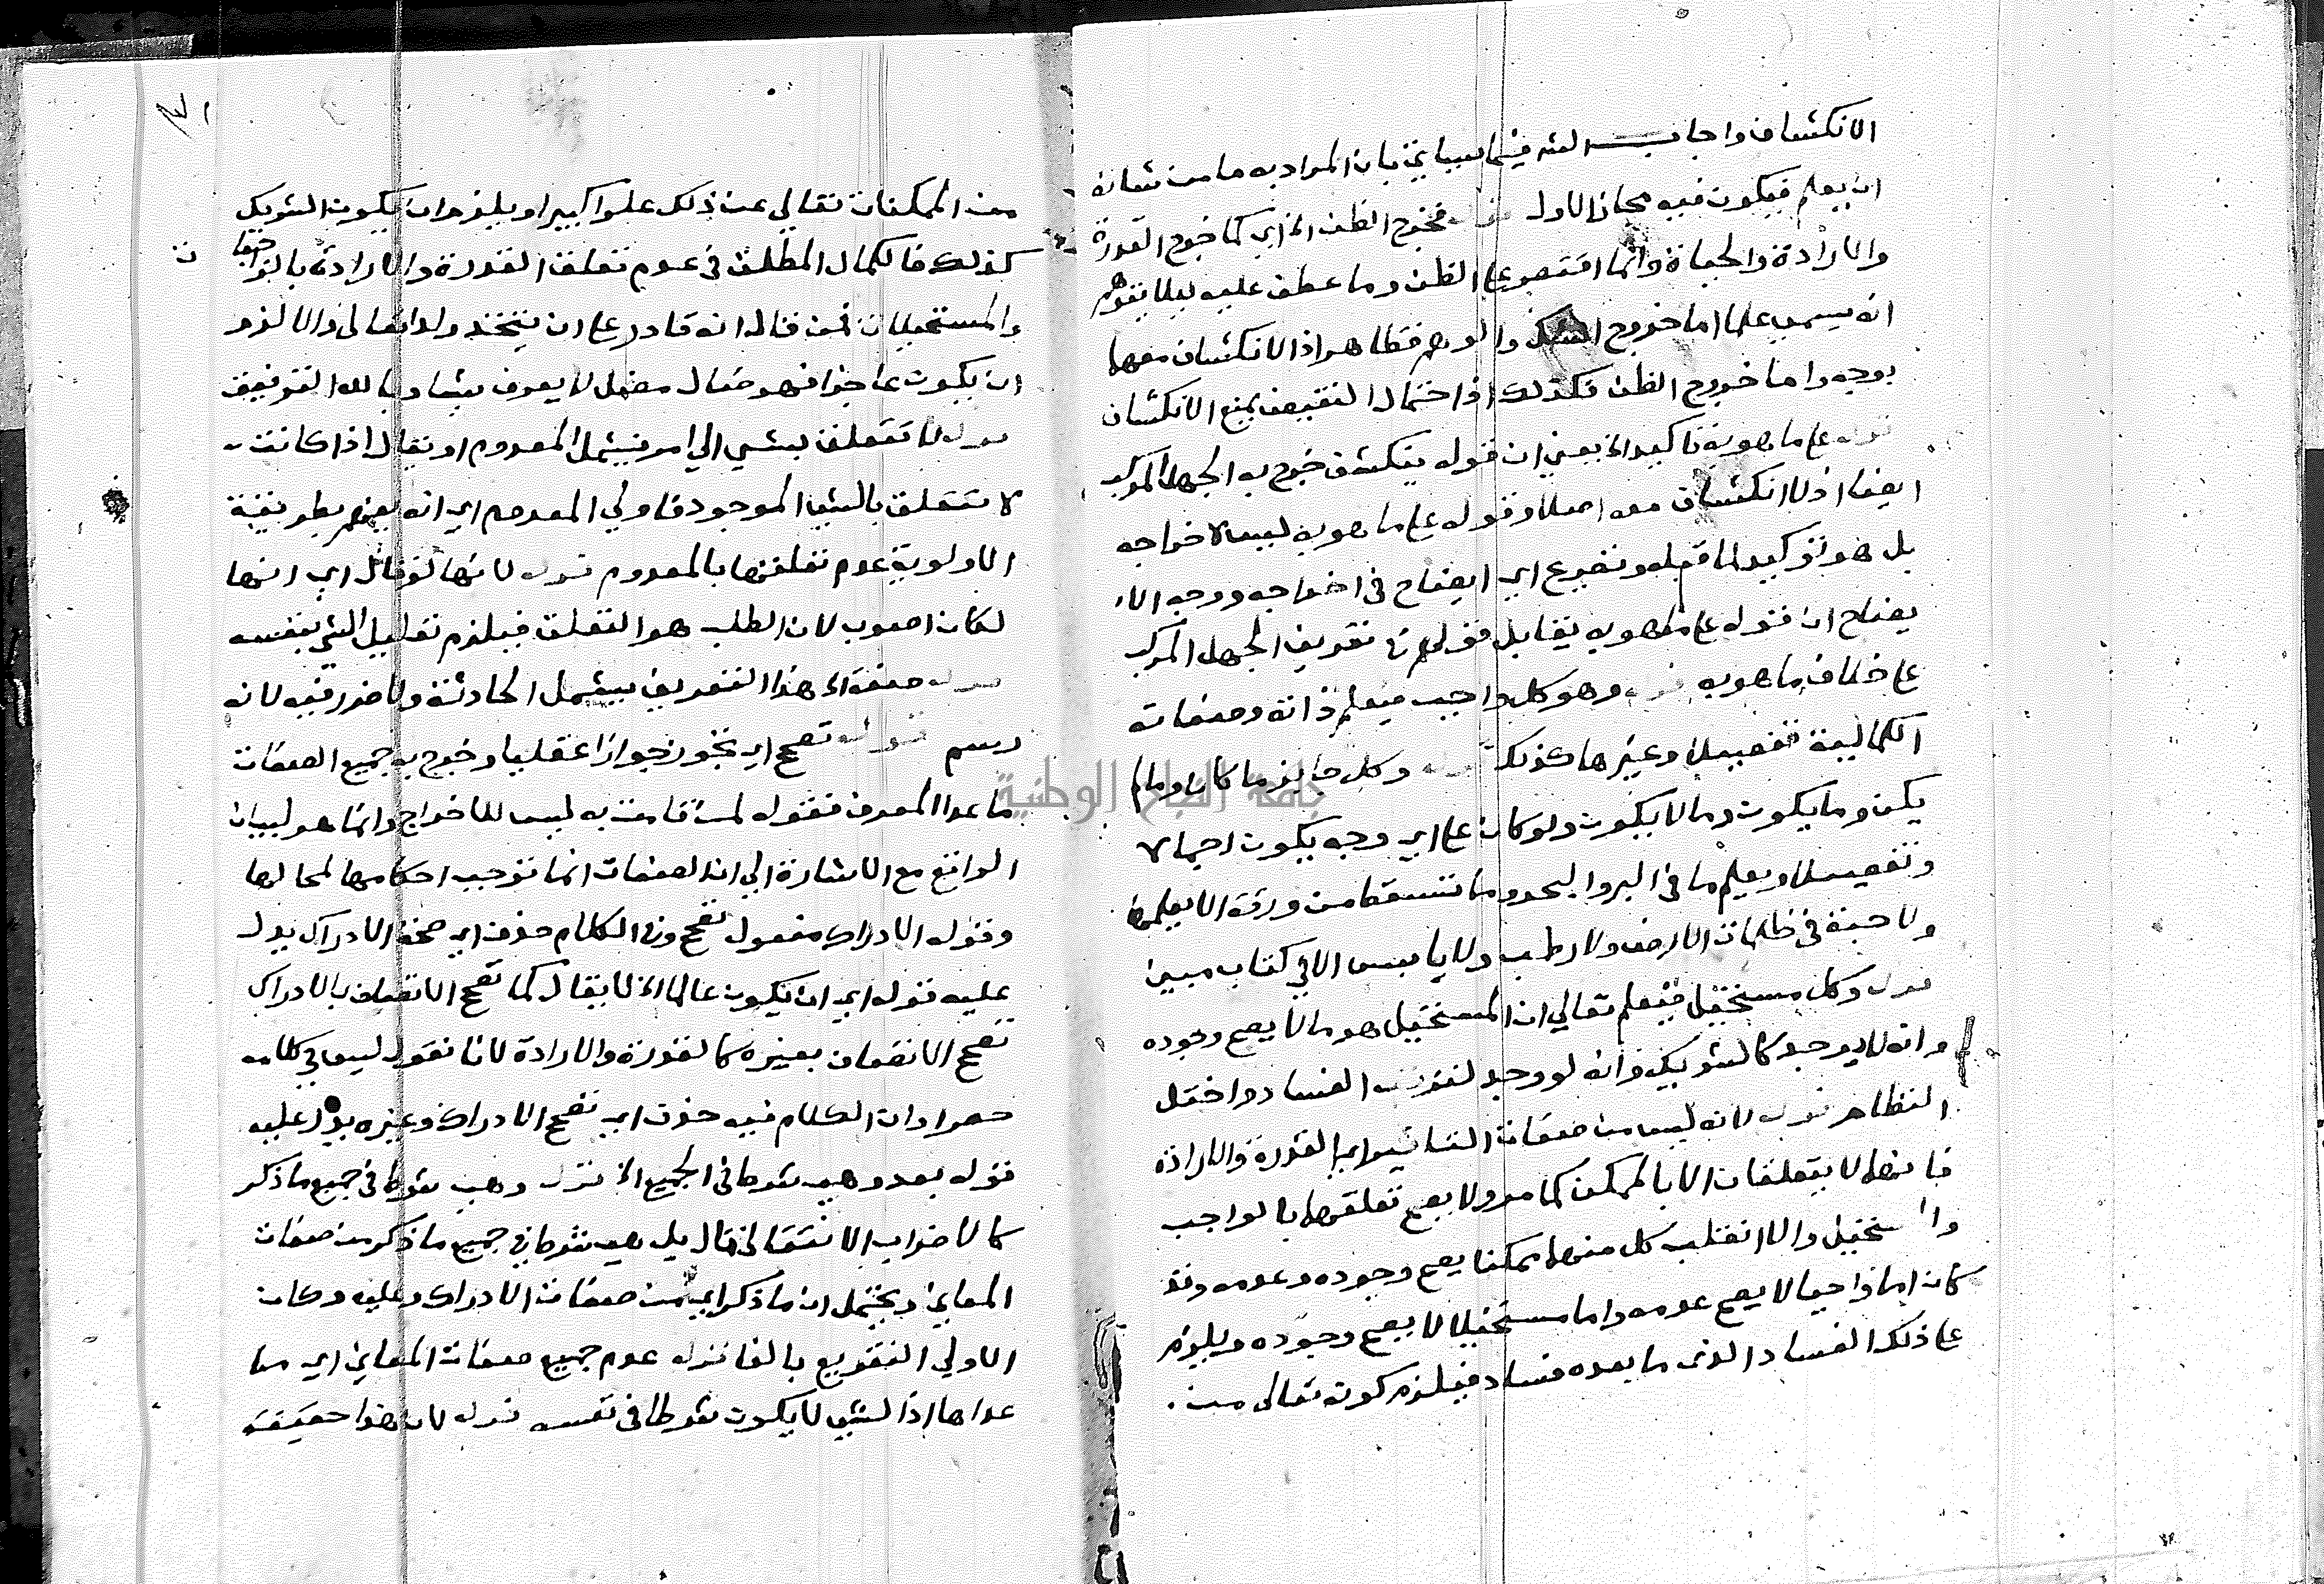 الانكشاف واجاب الشه فيما سياتي بان المراد به ما من شانه
ان يعلم فيكون فيه مجاز الاول قوله فخرج الظن الخ اي كما خرج القدرة
والارادة والحياة وانما اقتصر على الظن وما عطف عليه ليلا يتوهم
انه يسمي علما اما خروج الشك والوهم فظاهر اذ الانكشاف معها
بوجه واما خروج الظن فكذلك اذ احتمال النقيض يمنع الانكشاف
قوله على ما هو به تاكيد الخ يعني ان قوله ينكشف خرج به الجهل المركب
ايضا اذ لا انكشاف معه اصلا وقوله على ما هو به ليس لاخراجه
بل هو توكيد لما قبله وتفريع اي ايضاح في اخراجه ووجه الا
يضاح ان قوله على ما هو به يقابل قولهم في تعريف الجهل المركب
على خلاف ما هو به قوله وهو كل واجب فيعلم ذاته وصفاته
الكمالية تفصيلا وغيرها كذلك قوله وكل جايز ما كان وما لم
يكن وما يكون وما لا يكون ولو كان على اي وجه يكون اجمالا
وتفصيلا ويعلم ما في البر والبحر وما تسقط من ورقة الا يعلمها
ولا حبة في ظلمات الارض ولا رطب ولا يابس الا في كتاب مبين
قوله وكل مستحيل فيعلم تعالي ان المستحيل هو ما لا يصح وجوده
وانه لا يوجد كالشريك وانه لو وجد لفسد واختل
النظام قوله لانه ليس من صفات التاثير اي القدرة والارادة
فانهما لا يتعلقان الا بالممكن كما مر ولا يصح تعلقهما بالواجب
والمستحيل والا انقلب كل منهما ممكنا يصح وجوده وعدمه وقد
كان اما واجبا لا يصح عدمه واما مستحيلا لا يصح وجوده ويلزم
على ذلك الفساد الذي ما بعده فساد فيلزم كونه تعالى من
من الممكنات تعالي عن ذلك علوا كبيرا ويلزم ان يكون الشريك
كذلك فالكمال المطلق في عدم تعلق القدرة والارادة بالواجبات
والمستحيلات فمن قال انه قادر على ان يتخذ ولدا تعالى والا لزم
ان يكون عاجزا فهو ضال مضل لا يعرف شيا وبالله التوفيق
قوله لا تتعلق بشي الي امر فيشمل المعدوم او يقال اذا كانت
لا تتعلق بالشي الموجود فاولي المعدوم اي انه يفهم بطريقة
الاولوية عدم تعلقها بالمعدوم قوله لانها لو قال اي انها
لكان اصوب لان الطلب هو التعلق فيلزم تعليل الشي بنفسه
قوله صفة الخ هذا التعريف يشمل الحادثة ولا ضرر فيه لانه
رسم قوله تصحح اي تجوز جوازا عقليا وخرج به جميع الصفات
ما عدا المعرف فقوله لمن قامت به ليس للاخراج وانما هو لبيان
الواقع مع الاشارة الي ان الصفات انما توجب احكامها لمحالها
وقوله الادراك مفعول تصحح وفي الكلام حذف اي صحة الادراك يدل
عليه قوله اي ان يكون عالما الخ لا يقال كما تصحح الاتصاف بالادراك
تصحح الاتصاف بغيره كالقدرة والارادة لانا نقول ليس في كلامه
حصر او ان الكلام فيه حذف اي تصحح الادراك وغيره يدل عليه
قوله بعد وهي شرط في الجميع الخ قوله وهي شرط في جميع ما ذكر
كالاضراب الانتقالي فقال بل هي شرط في جميع ما ذكر من صفات
المعاني ويحتمل ان ما ذكر اي من صفات الادراك وعليه وكان
الاولي التفريع بالفا قوله عدم جميع صفات المعاني اي ما
عداها اذ الشي لا يكون شرطا في نفسه قوله لان هذا حقيقة
جامعة النجاح الوطنية